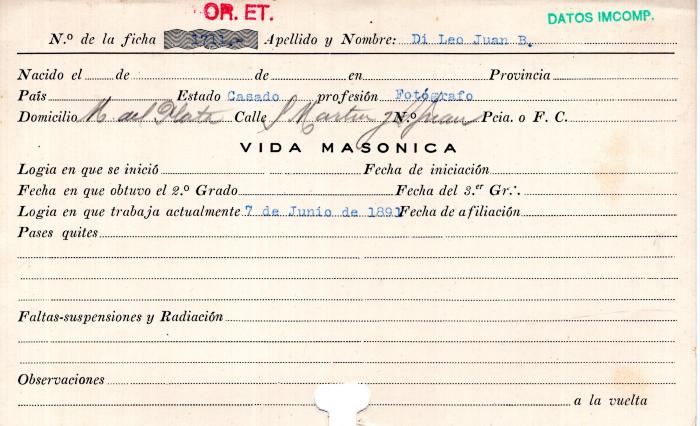 OR. ET.
DATOS IMCOMP.
N.º de la ficha Apellido y Nombre: Di Leo Juan B.
Nacido el de de en Provincia
País Estado Casado profesión Fotógrafo
Domicilio M del Plata Calle S Martin N.º Pcia. o F. C.
VIDA MASONICA
Logia en que se inició Fecha de iniciación
Fecha en que obtuvo el 2.º Grado Fecha del 3.er Gr∴
Logia en que trabaja actualmente 7 de Junio de 1891 Fecha de afiliación
Pases quites
Faltas-suspensiones y Radiación
Observaciones
a la vuelta